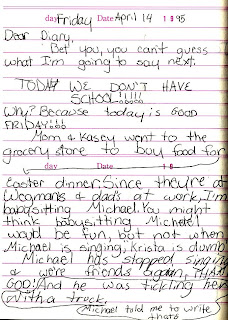 day Friday Date April 14 1995
Dear Diary,
Bet you, you can't guess
what I'm going to say next.
TODAY WE DON'T HAVE
SCHOOL!!!!!
Why? Because today is GOOD
FRIDAY!!!
Mom & Kasey went to the
grocery store to buy food for
day Date 19
Easter dinner. Since they're at
Wegmans & dad's at work, I'm
babysitting Michael. You might
think babysitting Michele
would be fun, but not when
Michael is singing, Krista is dumb.
Michael has stopped singing
& were friends again, THANK
GOD! And he was tickling her
with a truck.
Michael told me to write
that